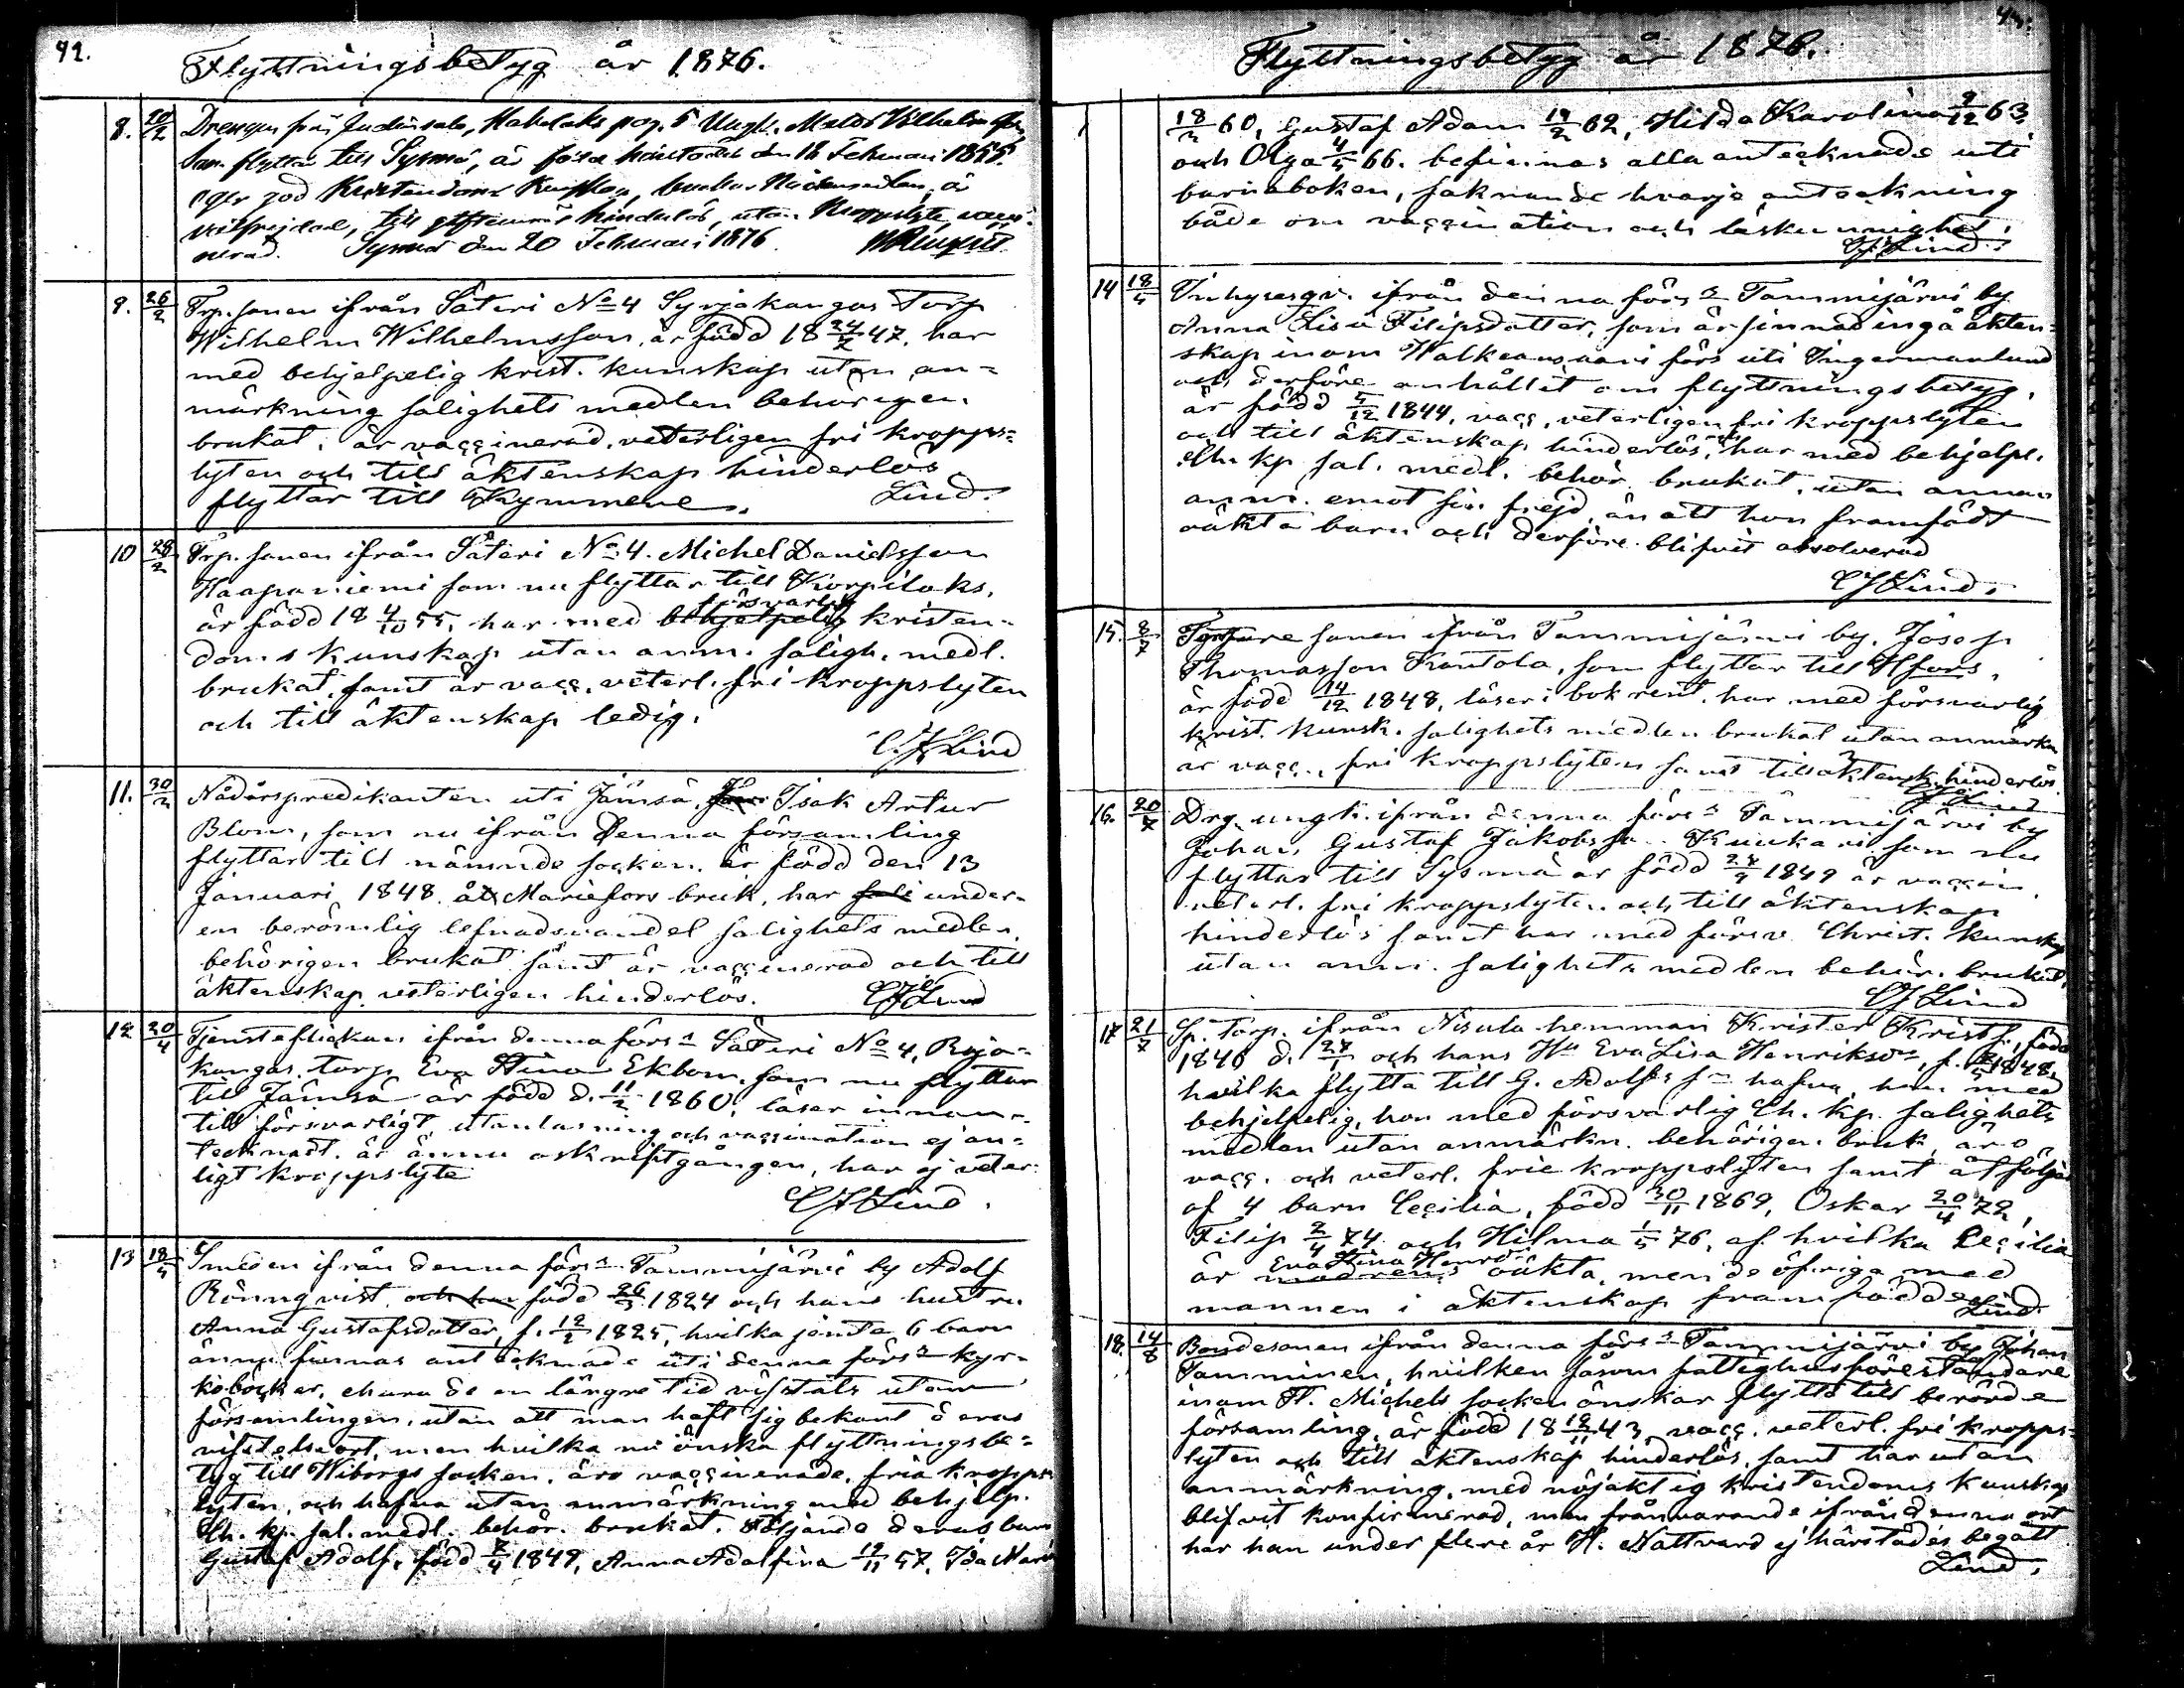 42.
Flyttningsbetyg år 1876.
8. 20/2 Drengen från Judinsalo, Mathias Vilhelm
flyttar till Sysmä, är född härstädes den 18 Februari 1855.
eger god Kristendoms Kunskap,
välfrejdad, till äktenskap hinderlös, utan kroppslyte, vacci-
nerad. Sysmä den 20 Februari 1876.
9. 26/2 Trp. sonen ifrån Säteri No 4 Syrjäkangas Torp
Wilhelm Wilhelmsson, är född 18 24/7 47, har
med behjelpelig krist. kunskap utan an-
märkning salighets medlen behörigen
brukat, är vaccinerad, veterligen fri kropps-
lyten och till äktenskap hinderlös
flyttar till Kymmene. Lind.
10 28/2 Trp. sonen ifrån Säteri No 4. Michel Danielsson
Haapaniemi som nu flyttar till Korpilaks,
är född 18 4/10 55, har med behjelpelig försvarlig kristen-
doms kunskap utan anm. saligh. medl.
brukat, samt är vacc. veterl. fri kroppslyten
och till äktenskap ledig.
C. J. Lind
11. 30/2 Nådårspredikanten uti Jämsä, Isak Artur
Blom, som nu ifrån denna församling
flyttar till nämnde socken, är född den 13
Januari 1848 å Mariefors bruk, har under
en berömlig lefnadsvandel salighets medlen
behörigen brukat samt är vaccinerad och till
äktenskap veterligen hinderlös. CJLind
12 20/4 Tjensteflickan ifrån denna förs:s Säteri No 4, Rojo-
kangas torp Eva Stina Ekbom, som nu flyttar
till Jämsä är född d. 11/2 1860, läser innan-
till försvarligt, utanläsning och vaccination ej an-
tecknadt, är ännu oskriftgången, har ej veter-
ligt kroppslyte
CJ Lind.
13 18/5 Smeden ifrån denna förs:s Tammijärvi by Adolf
Rönnqvist, och har född 26/3 1824 och hans hustru
Anna Gustafsdotter, f. 12/2 1825, hvilka jemte 6 barn
ännu finnas antecknade uti denna förs:s kyr-
koböcker, ehuru de en längre tid vistats utom
församlingen, utan att man haft sig bekant deras
vistelseort, men hvilka nu önska flyttningsbe-
tyg till Wiborgs socken, äro vaccinerade, fria kropps-
lyten, och hafva utan anmärkning med behjelp.
Ch. kp. sal. medl. behör. brukat. Följande deras barn
Gustaf Adolf, född 1849, Anna Adolfina 12/11 57, Ida Maria
Flyttningsbetyg år 1876.
18/2 60, Gustaf Adam 19/2 62, Hilda Karolina 9/12 63
och Olga 4/5 66. befinnas alla antecknade uti
barnaboken, saknande hvarje anteckning
både om vaccination och läskunnighet.
CJ Lind.
14 18/5 Inhysesqv. ifrån denna förs:s Tammijärvi by
Anna Lisa Filipsdotter, som är sinnad ingå äkten-
skap inom Walkeasaari förs uti Ingermanland
och derföre anhållit om flyttningsbetyg,
är född 5/12 1844, vacc, veterligen fri kroppslyten
och till äktenskap hinderlös, har med behjelpl.
Ch. kp sal. medl. behör. brukat, utan annan
anm. emot sin frejd, än att hon framfödt
oäkta barn och derföre blifvit absolverad
CJ Lind.
15. 8/7 Torpare sonen ifrån Tammijärvi by, Josef
Thomasson Kontola, som flyttar till Hfors,
är född 14/12 1848, läser i bok rent, har med försvarlig
krist. kunsk. salighets medlen brukat utan anmärkn
är vacc., fri kroppslyten samt till äktensk. hinderlös
CJ Lind
16. 20/7 Drg. ungk. ifrån denna förs:s Tammijärvi by
Johan Gustaf Jakobsson Kuukari som nu
flyttar till Sysmä är född 24/9 1849 är vaccin.
veterl. fri kroppslyten och till äktenskap
hinderlös samt har med försv. Christ. kunskap
utan anm. salighets medlen behör. brukat,
CJ Lind
17 21/7 Sp. torp. ifrån Nisula hemman Krister Kristf., född
1840 d. 27/1 och hans Hu Eva Lisa Henriksdr, f. 1848,
hvilka flytta till G. Adolfs s:n hafva, han med
behjelpelig, hon med försvarlig Ch. kp. salighets
medlen utan anmärkn. behörigen bruk, äro
vacc. och veterl. frie kroppslyten samt åtföljas
af 4 barn Cecilia, född 30/11 1869, Oskar 20/4 72,
Filip 2/4 74 och Hilma 1/5 76, af hvilka Cecilia
är modrens Eva Stina Henrd:s oäkta, men de öfriga med
mannen i äktenskap framfödde Lind
18. 14/8 Bondesonen ifrån denna förs:s Tammijärvi by Johan
Tamminen, hvilken såsom fattighusföreståndare
inom St. Michels socken önskar flytta till berörde
församling, är född 18 12/11 43, vacc. veterl. fri kropps-
lyten och till äktenskap hinderlös, samt har utan
anmärkning, med nöjaktig kristendoms kunskap
blifvit konfirmerad, men frånvarande ifrån denna ort
har han under flere år H. Nattvard ej härstädes begått
Lind.